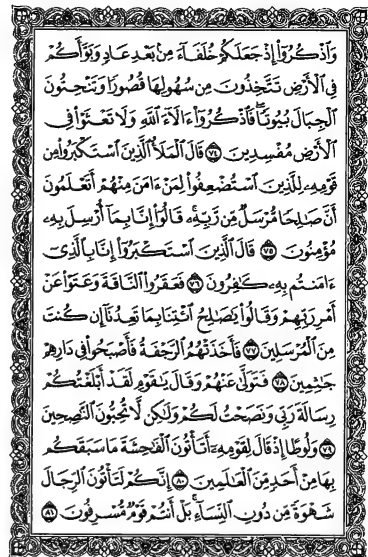 وَاذْكُرُوا إِذْ جَعَلَكُمْ خُلَفَاءَ مِنْ بَعْدِ عَادٍ وَبَوَّأَكُمْ
فِي الْأَرْضِ تَتَّخِذُونَ مِن سُهُولِهَا قُصُورًا وَتَنْحِتُونَ
الْجِبَالَ بُيُوتًا ۖ فَاذْكُرُوا ءَالَاءَ اللَّهِ وَلَا تَعْثَوْا فِي
الْأَرْضِ مُفْسِدِينَ ٧٤ قَالَ الْمَلَأُ الَّذِينَ اسْتَكْبَرُوا مِن
قَوْمِهِ لِلَّذِينَ اسْتُضْعِفُوا لِمَنْ ءَامَنَ مِنْهُمْ أَتَعْلَمُونَ
أَنَّ صَالِحًا مُرْسَلٌ مِّن رَّبِّهِ ۚ قَالُوا إِنَّا بِمَا أُرْسِلَ بِهِ
مُؤْمِنُونَ ٧٥ قَالَ الَّذِينَ اسْتَكْبَرُوا إِنَّا بِالَّذِي
ءَامَنتُم بِهِ كَافِرُونَ ٧٦ فَعَقَرُوا النَّاقَةَ وَعَتَوْا عَنْ
أَمْرِ رَبِّهِمْ وَقَالُوا يَاصَالِحُ ائْتِنَا بِمَا تَعِدُنَا إِن كُنتَ
مِنَ الْمُرْسَلِينَ ٧٧ فَأَخَذَتْهُمُ الرَّجْفَةُ فَأَصْبَحُوا فِي دَارِهِمْ
جَاثِمِينَ ٧٨ فَتَوَلَّىٰ عَنْهُمْ وَقَالَ يَاقَوْمِ لَقَدْ أَبْلَغْتُكُمْ
رِسَالَةَ رَبِّي وَنَصَحْتُ لَكُمْ وَلَٰكِن لَّا تُحِبُّونَ النَّاصِحِينَ
٧٩ وَلُوطًا إِذْ قَالَ لِقَوْمِهِ أَتَأْتُونَ الْفَاحِشَةَ مَا سَبَقَكُم
بِهَا مِنْ أَحَدٍ مِّنَ الْعَالَمِينَ ٨٠ إِنَّكُمْ لَتَأْتُونَ الرِّجَالَ
شَهْوَةً مِّن دُونِ النِّسَاءِ ۚ بَلْ أَنتُمْ قَوْمٌ مُّسْرِفُونَ ٨١